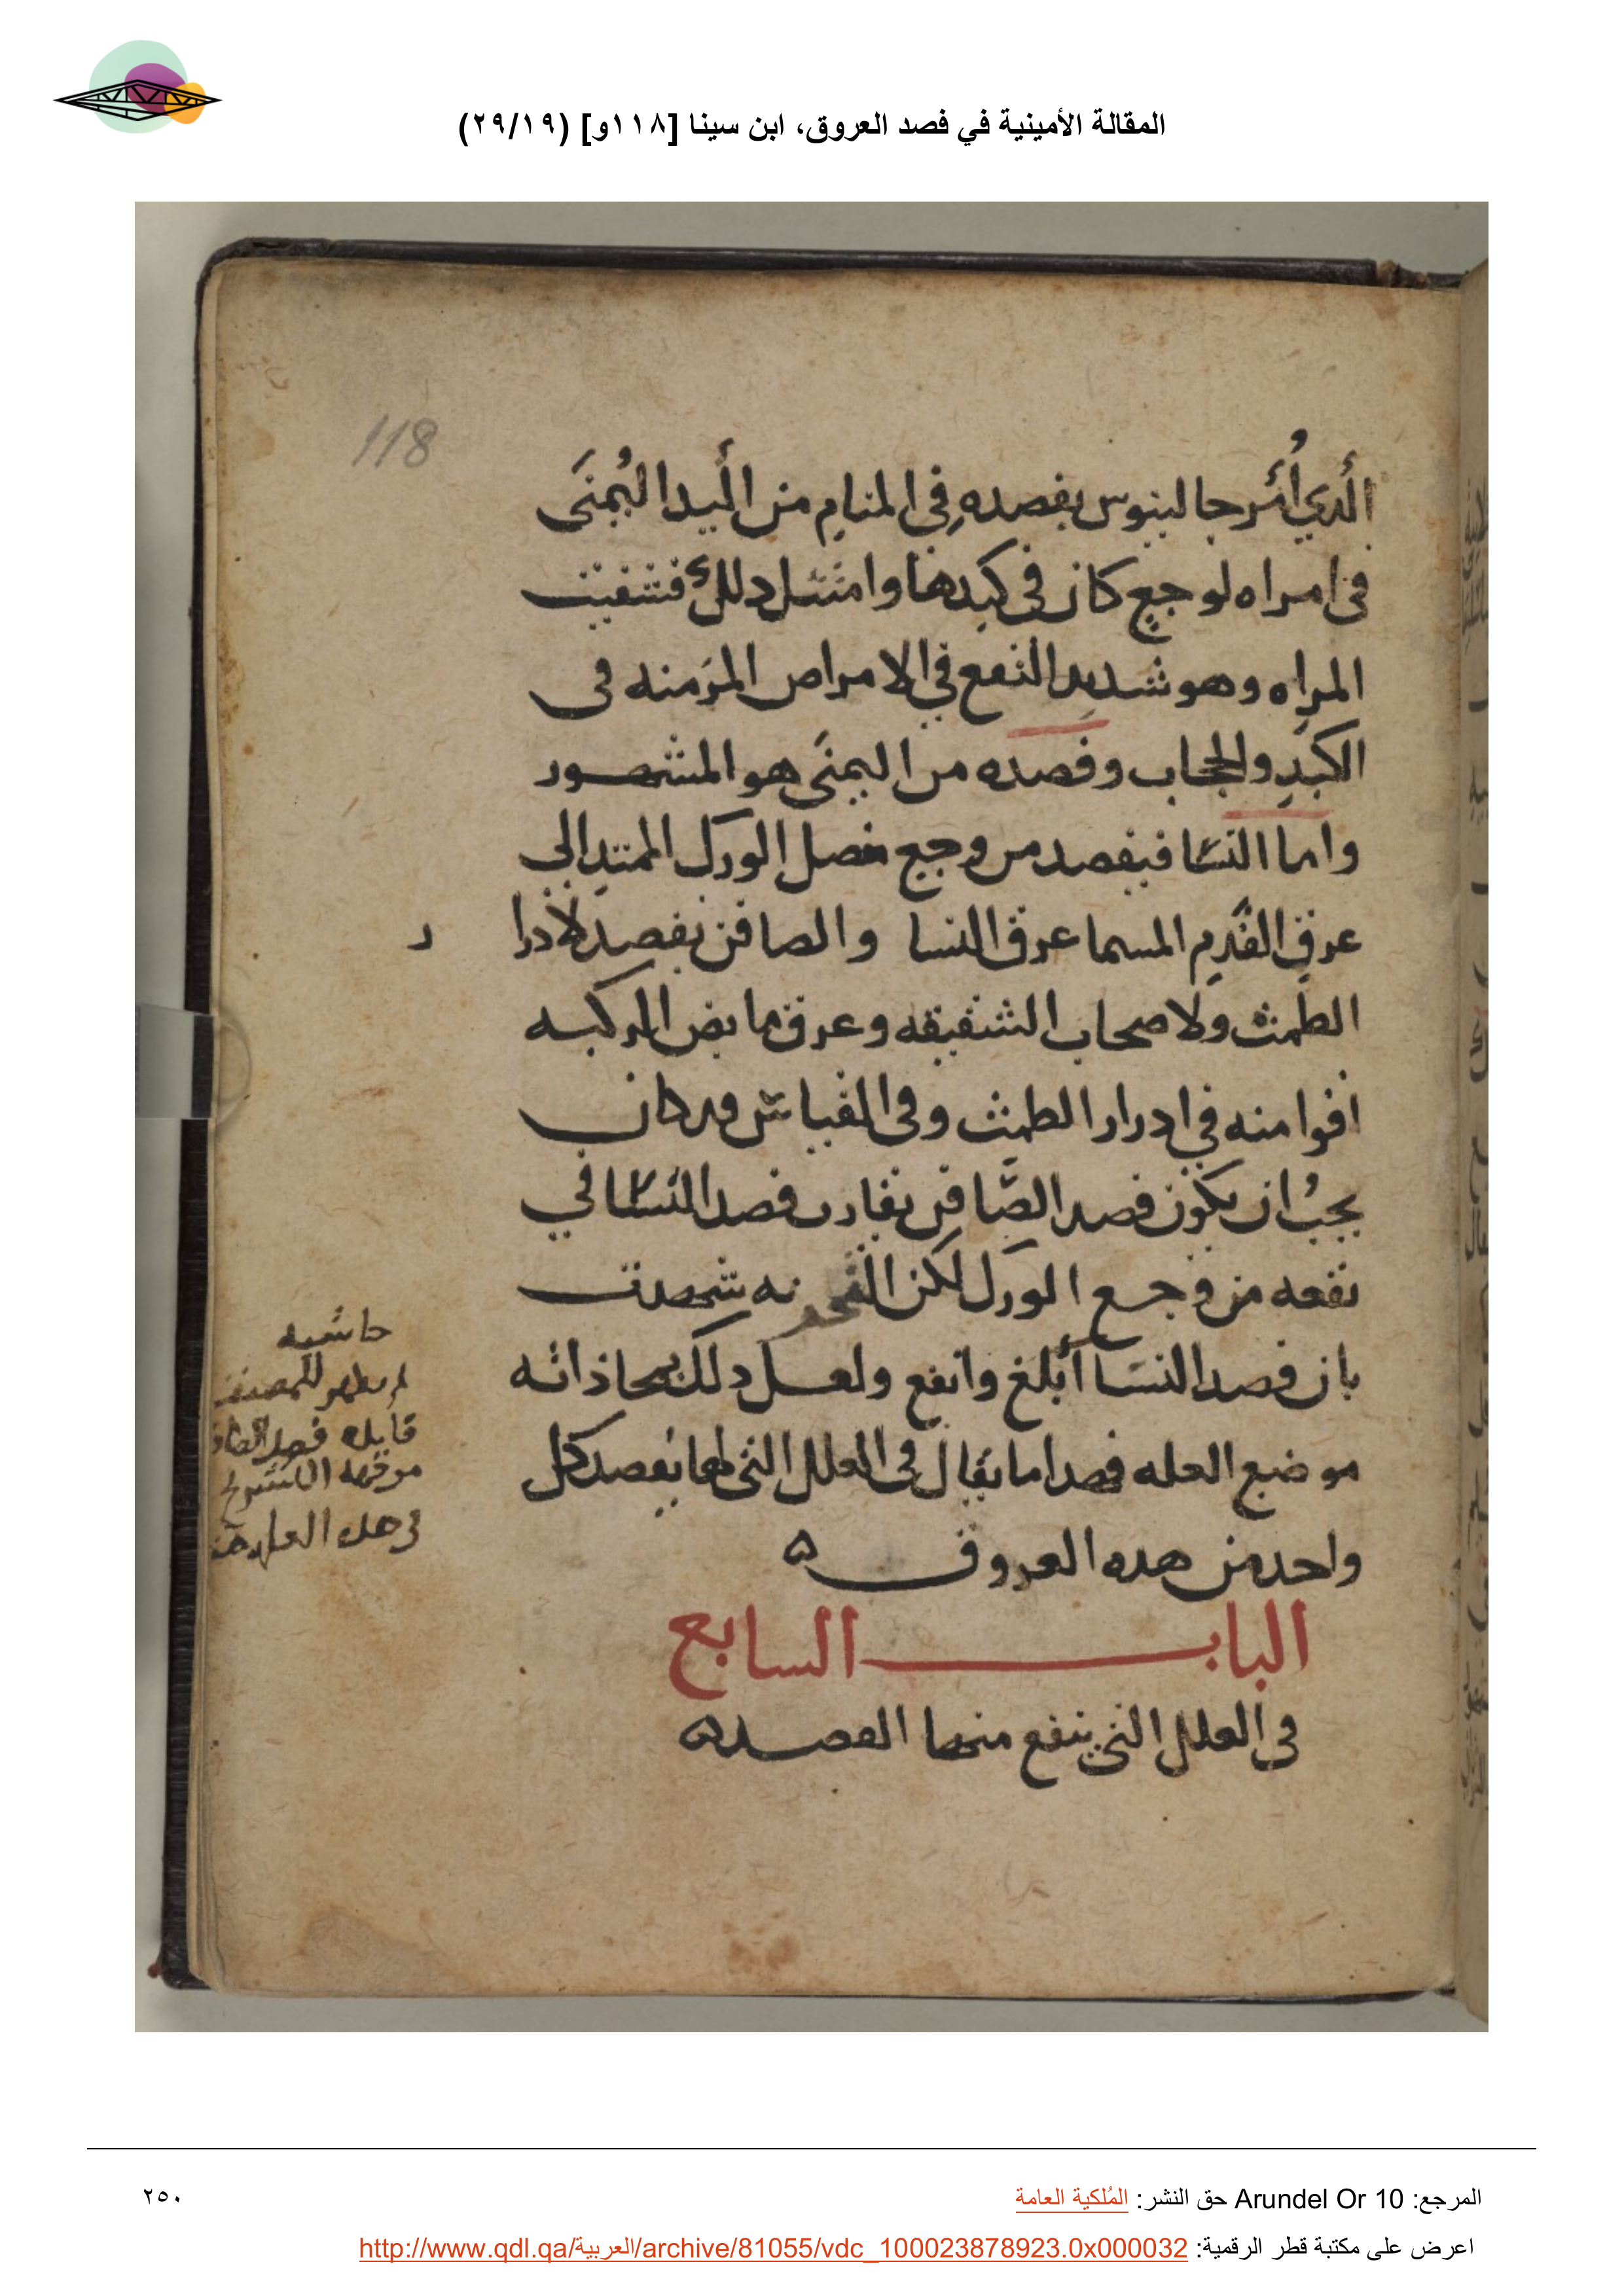 المقالة الأمينية في فصد العروق، ابن سينا [١١٨و] (٢٩/١٩)
118
الذي أُمر جالينوس بفصده في المنام من اليد اليُمنَى
في امراه لوجع كان في كبدها وامتثل دلك فشفيت
المراه وهو شديد النفع في الامراض المزمنه في
الكبد والحجاب وفصده من اليمنَى هو المشهور
واما النسا فيفصد من وجع مفصل الورك الممتد الى
عرق القدم المسما عرق النسا والصافن يفصد لادرا
ر
الطمث ولاصحاب الشقيقه وعرق مابض الركبه
اقوا منه في ادرار الطمث وفي القياس قد كان
يجبُ ان يكون فصد الصَّافن يقارب فصد النسا في
نفعه من وجع الورك لكن التجربه شهدت
بان فصد النسا أبلغ وانفع ولعل دلك لمحاذاته
موضع العله فهدا ما يقال في العلل التي لها يفصد كل
واحد من هده العروق ه
الباب السابع
في العلل التي ينفع منها الفصد ه
حاشيه
لم يظهر للمصنف
فايده فصد الصاف
من جهة التشريح
في هده العله
المرجع: Arundel Or 10 حق النشر: المُلكية العامة
٢٥٠
اعرض على مكتبة قطر الرقمية: http://www.qdl.qa/العربية/archive/81055/vdc_100023878923.0x000032